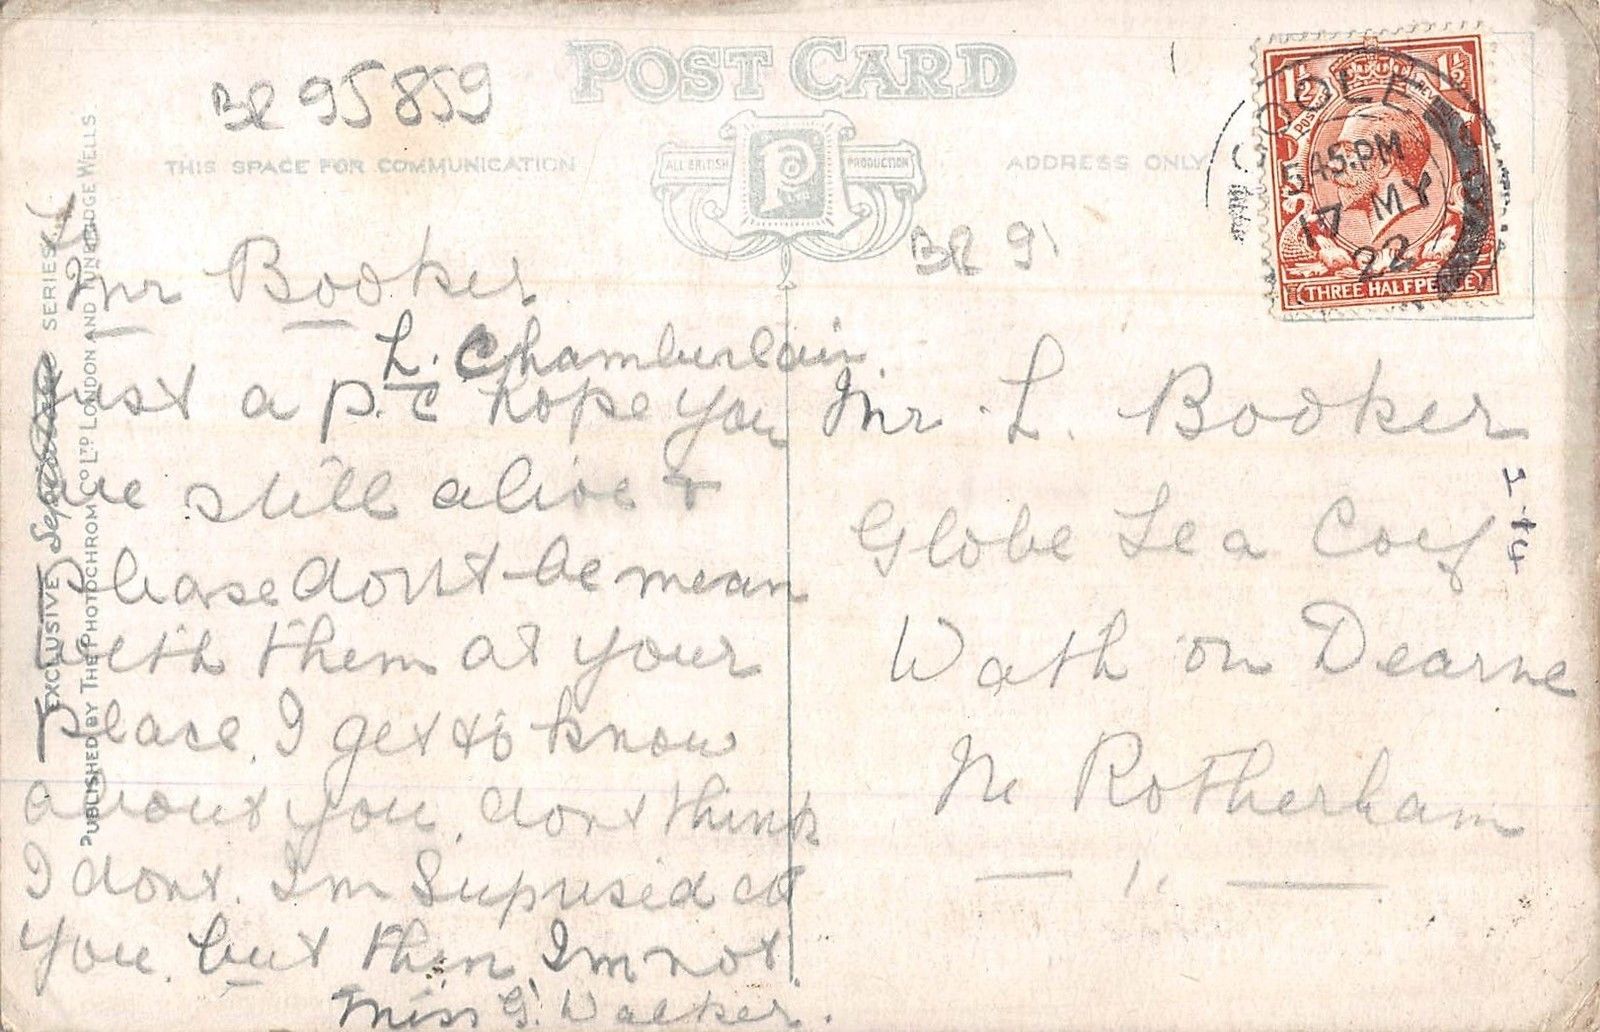 POST CARD
BR 95859
THIS SPACE FOR COMMUNICATION
ALL BRITISH
PRODUCTION
ADDRESS ONLY
Mr Booker
L. Chamberlain
Just a p.c hope you
are still alive &
please dont be mean
with them at your
place. I get to know
about you, dont think
I dont. Im Suprised at
you. but then Im not.
Miss G. Walker.
BR 9
1½ 1½
POSTAGE REVENUE
THREE HALFPENCE
GOOLE
5 45.PM
17 MY
22
Mr. L. Booker
Globe Tea Coy
Wath on Dearne
Nr Rotherham
EXCLUSIVE SERIES
PUBLISHED BY THE PHOTOCHROM CO. LTD LONDON AND TUNBRIDGE WELLS.